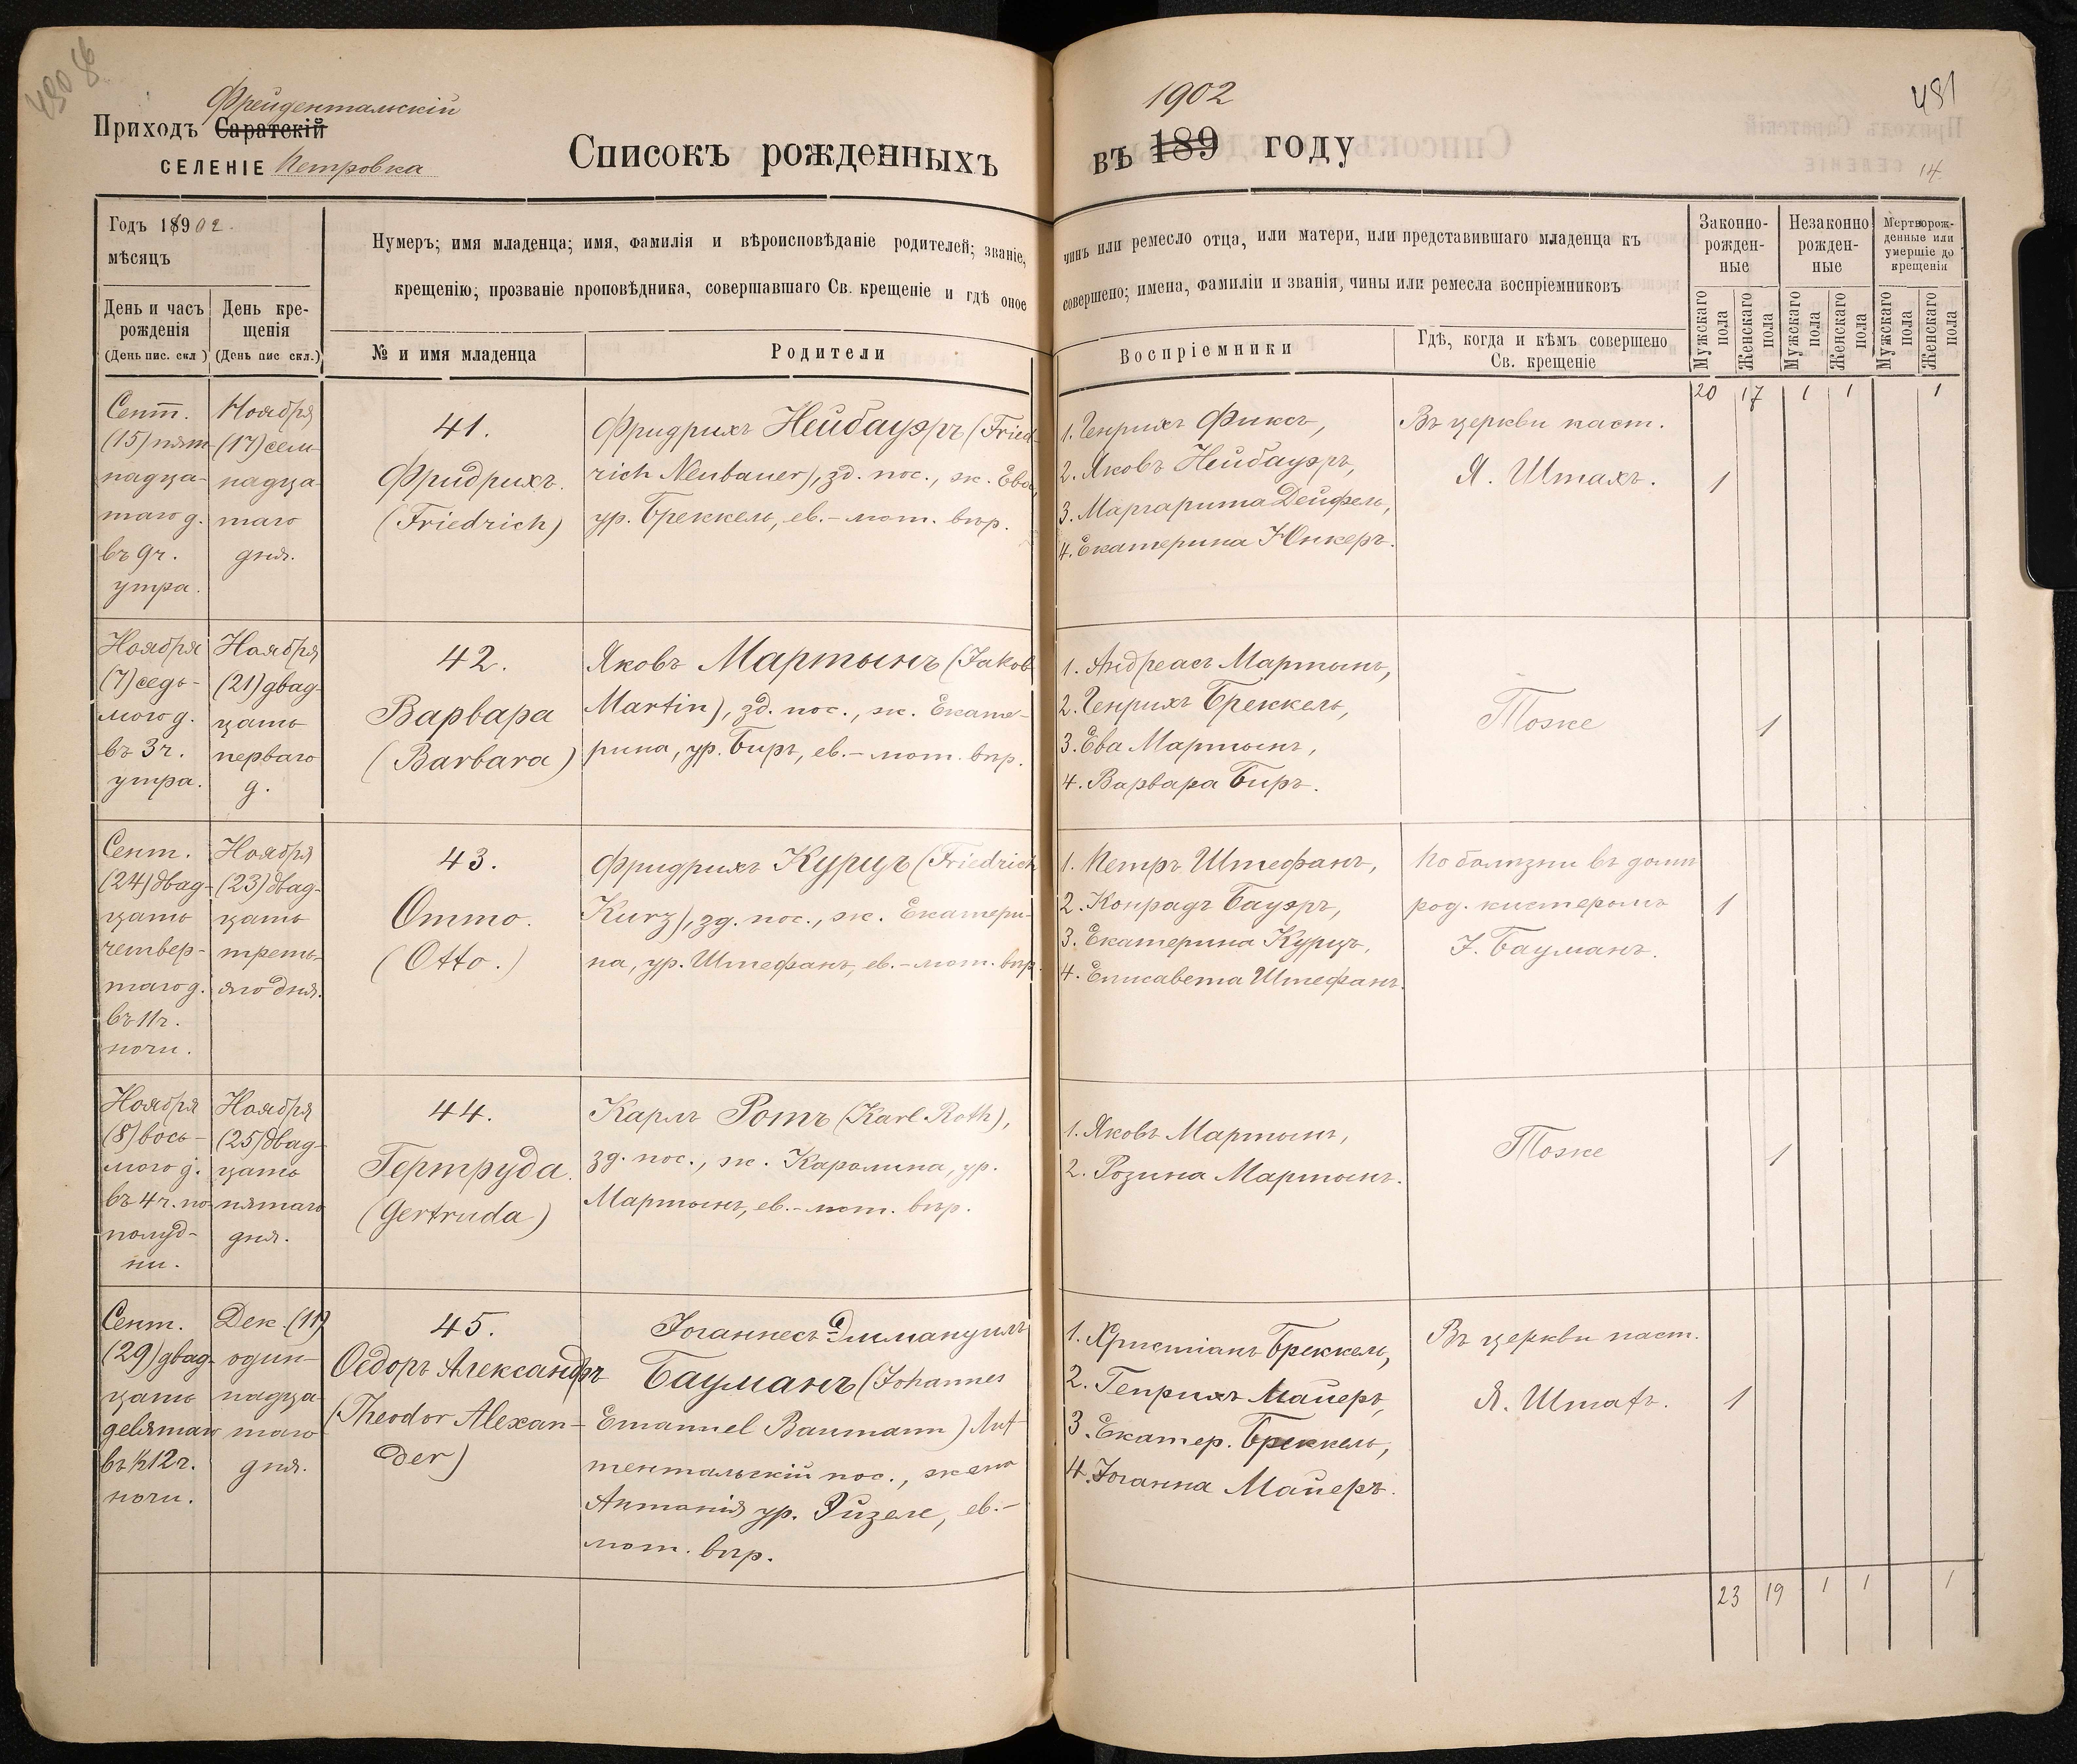 430 об
Фрейдентальскій
Приходъ Саратскій
СЕЛЕНІЕ Петровка
Списокъ рожденныхъ
1902
въ 189 году
481
14.
Годъ 18902.
мѣсяцъ
День и часъ рожденія
(День пис. скл.)
День крещенія
(День пис скл.)
Нумеръ; имя младенца; имя, фамилія и вѣроисповѣданіе родителей; званіе,
крещенію; прозваніе проповѣдника, совершавшаго Св. крещеніе и гдѣ оное
№ и имя младенца
Родители
чинъ или ремесло отца, или матери, или представившаго младенца къ
совершено; имена, фамиліи и званія, чины или ремесла воспріемниковъ
Воспріемники
Гдѣ, когда и кѣмъ совершено
Св. крещеніе
Законно-
рожден-
ные
Незаконно
рожден-
ные
Мертворож-
денные или
умершіе до
крещенія
Мужскаго пола
Женскаго пола
Мужскаго пола
Женскаго пола
Мужскаго пола
Женскаго пола
20 17 1 1 1
Сент.
(15) пят-
надца-
таго д.
въ 9 ч.
утра.
Ноября
(17) сем-
надца-
таго
дня.
41.
Фридрихъ.
(Friedrich)
Фридрихъ Нейбауэръ (Fried-
rich Neubauer), зд. пос., ж. Ева,
ур. Бреккель, ев.-лют. вѣр.
1. Генрихъ Фиксъ,
2. Яковъ Нейбауэръ,
3. Маргарита Дейфель,
4. Екатерина Юнкеръ.
Въ церкви паст.
Я. Штахъ.
1
Ноября
(7) седь-
мого д.
въ 3 ч.
утра.
Ноября
(21) двад-
цать
перваго
д.
42.
Варвара
(Barbara)
Яковъ Мартынъ (Jakob
Martin), зд. пос., ж. Екате-
рина, ур. Биръ, ев.-лют. вѣр.
1. Андреасъ Мартынъ,
2. Генрихъ Бреккель,
3. Ева Мартынъ,
4. Варвара Биръ.
Тоже
1
Сент.
(24) двад-
цать
четвер-
таго д.
въ 11 ч.
ночи.
Ноября
(23) двад-
цать
треть-
яго дня.
43.
Отто.
(Otto.)
Фридрихъ Курцъ (Friedrich
Kurz), зд. пос., ж. Екатери-
на, ур. Штефанъ, ев.-лют. вѣр.
1. Петръ Штефанъ,
2. Конрадъ Бауэръ,
3. Екатерина Курцъ,
4. Елисавета Штефанъ.
По болѣзни въ домѣ
род. кистеромъ
I. Бауманъ.
1
Ноября
(8) вось-
мого д.
въ 4 ч. по
полуд-
ни.
Ноября
(25) двад-
цать
пятаго
дня.
44.
Гертруда.
(Gertruda)
Карлъ Ротъ (Karl Roth),
зд. пос., ж. Каролина, ур.
Мартынъ, ев.-лют. вѣр.
1. Яковъ Мартынъ,
2. Розина Мартынъ.
Тоже
1
Сент.
(29) двад-
цать
девятаго
въ ½12 ч.
ночи.
Дек. (11)
один-
надца-
таго
дня.
45.
Ѳедоръ Александръ
(Theodor Alexan-
der)
Іоганнесъ Эммануилъ
Бауманъ (Johannes
Emanuel Baumann) Лих-
тентальскій пос., жена
Антонія ур. Эйзеле, ев.-
лют. вѣр.
1. Христіанъ Бреккель,
2. Генрихъ Майеръ,
3. Екатер. Бреккель,
4. Іоганна Майеръ.
Въ церкви паст.
Я. Штахъ.
1
23 19 1 1 1